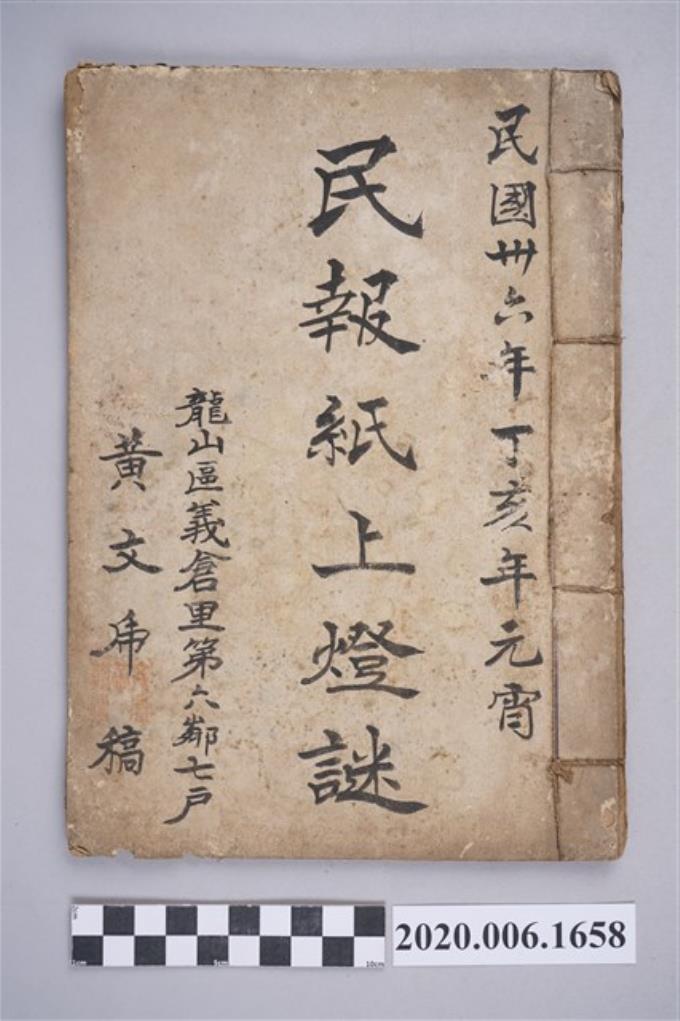 民國卅六年丁亥年元宵
民報紙上燈謎
龍山區義倉里第六鄰七戶
黃文虎稿
2020.006.1658
1cm 5cm 10cm